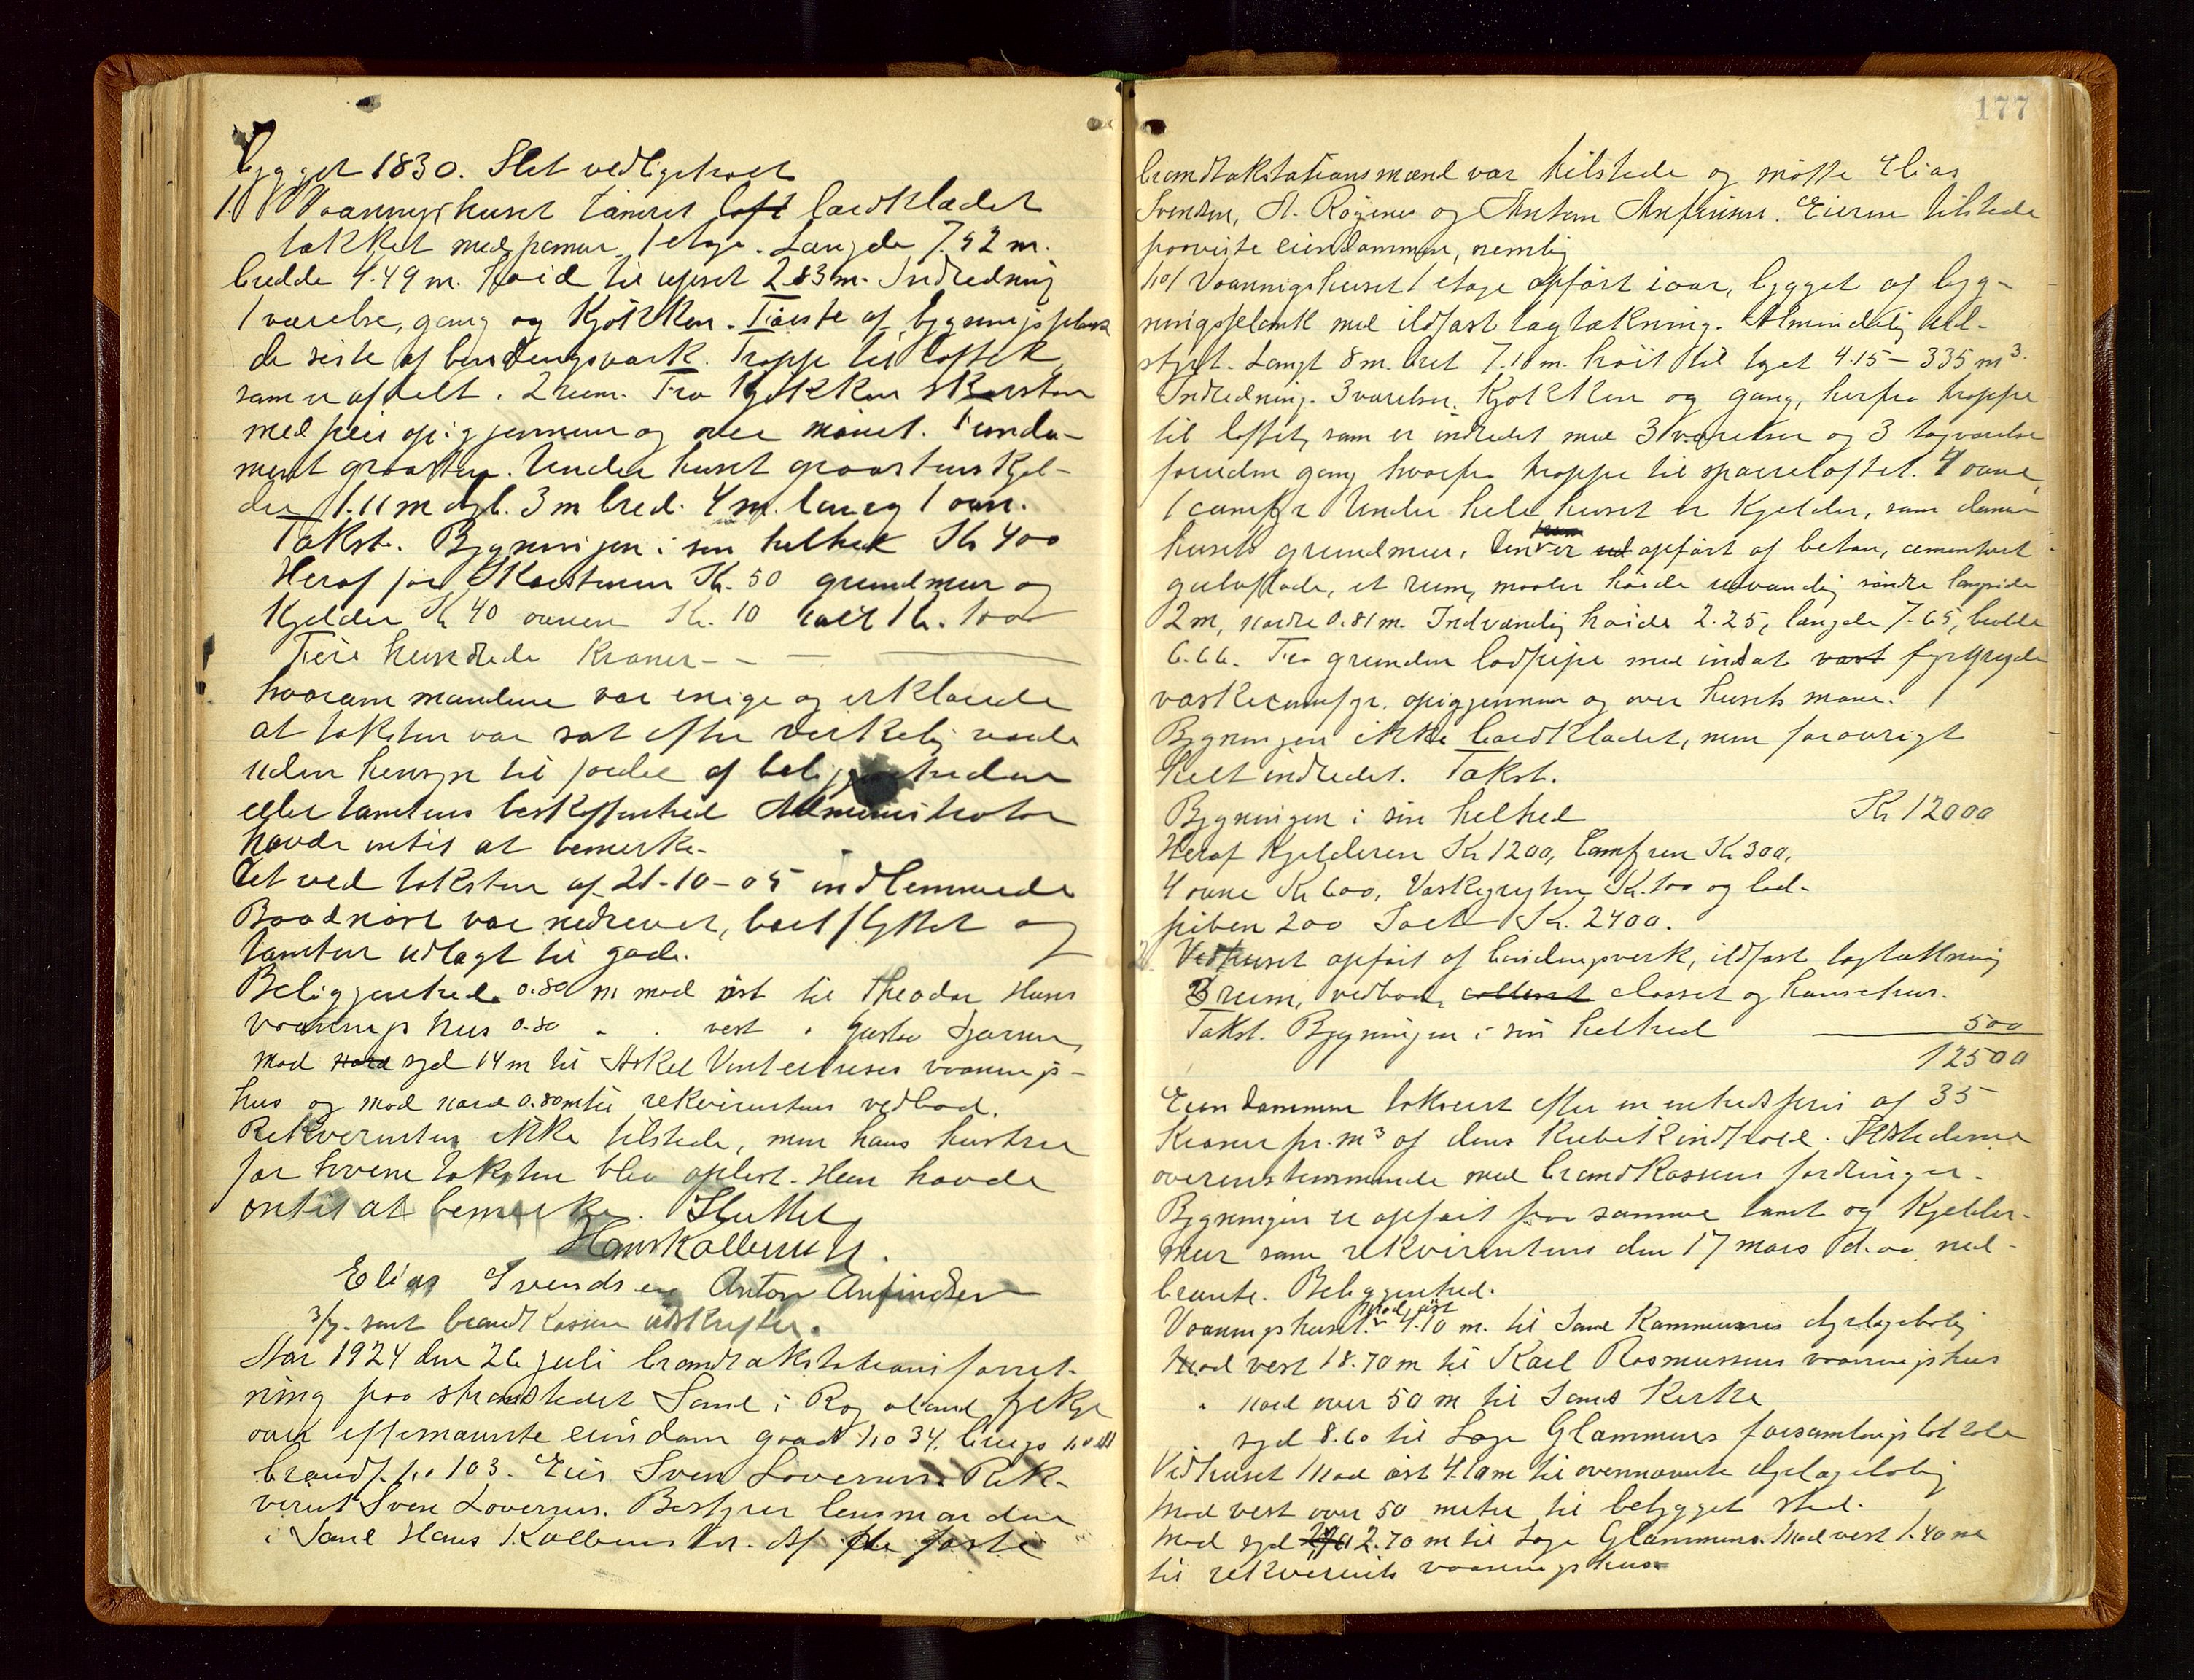 bygget 1830. Slet vedligeholt
1. Vaaningshuset tømret loft bordklædet
tækket med panner, 1 etage. Længde 7.52 m.
bredde 4.49 m. Høid til gesimset 2.83 m. Indredning
1 værelse, gang og Kjøkken. Første af bygningsplank
de siste af bindingsværk. Trappe til loftet
som er afdelt. 2 rum. Fra Kjøkken Skorsten
med peis opigjennem og over mønet. Funda-
ment graasten. Under huset graastens Kjel-
der 1.11 m dyb. 3 m bred. 4 m. lang 1 ovn.
Takst. Bygningen i sin helhet Kr 400
Heraf for Skorstenen Kr. 50 grundmur og
Kjelder Kr 40 ovnen Kr. 10 ialt Kr. 100
Fire hundrede Kroner - - —
hvorom mændene var enige og erklærede
at taksten var sat efter virkelig værde
uden hensyn til fordel af beliggenheden
eller tomtens beskaffenhed Administrator
havde intet at bemerke.
Det ved taksten af 21-10-05 indlemmede
Baadnøst var nedrevet, bortflyttet og
tomten udlagt til gade.
Beliggenhed. 0.80 m mod øst til Theodor Hans
vaaningshus 0.80 " . vest " Gustav
mod nord syd 14 m til Askel Vintertuns vaanings-
hus og mod nord 0.80 m til rekvirentens vedbod.
Rekvirenten ikke tilstede, men hans hustru
for hvem taksten blev oplest. Hun havde
intet at bemerke. Sluttet
Hans Kolbenstv.
Elias Svendsen Anton Anfindsen
3/7. sent brandkassen udskrifter.
Aar 1924 den 26 juli brandtakstations forret-
ning paa strandstedet Sand i Rogaland fylke
over efternævnte eiendom gaards No 34. brugs No
brandf. No 103. Eier Sven Lovernes. Rek-
virent Sven Lovernes. Bestyrer lensmanden
i Sand Hans Kolbenstv. Af de faste
177
brandtakstationsmænd var tilstede og møtte Elias
Svendsen, A. Røgenes og Anton Anfinsen. Eieren tilstede
paaviste eiendommen, nemlig
No 1 Vaaningshuset 1 etage opført iaar, bygget af byg-
ningsplank med ildfast tagtækning. Almindelig ud-
styrt. Langt 8 m. bret 7.10 m. høit til taget 4.15 - 335 m3.
Indredning. 3 værelser, Kjøkken og gang, herfra trappe
til loftet, som er indredet med 3 værelser og 3 tagværelse
foruden gang hvorfra trappe til sparreloftet. 4 ovne,
1 comfyr Under hele huset er Kjelder, som danner
husets grundmur. Den er ud opført af beton, cementert
gulvflade, et rum, maaler høide udvændig søndre langside
2 m, nordre 0.81 m. Indvændig høide 2.25, længde 7.65, bredde
6.66. Fra grunden lodpipe med indsat vast fyrgryde
vaskecomfyr. opigjennem og over husets møne.
Bygningen ikke bordklædet, men forøvrigt
helt indredet. Takst.
Bygningen i sin helhed Kr 12000
Heraf Kjelderen Kr 1200, Comfyren Kr 300,
4 ovne Kr 600, Vaskegryten Kr. 100 og lod-
piben 200 Ialt Kr. 2400.
2. Vedhuset opført af bindingsverk, ildfast tagtækning
3 rum, vedbod, closset og hønsehus.
Takst. Bygningen i sin helhed 500
12500
Eiendommen takseret efter en enhedspris af 35
Kroner pr. m3 af dens Kubikindhold. Ildstederne
overensstemmende med brandkassens fordringer.
Bygningen er opført paa samme tomt og Kjelder-
mur som rekvirentens den 17 mars d.aa. ned-
brænte. Beliggenhed.
Vaaningshuset. Mod øst 4.10 m. til Sand Kommunes dyrlægebolig
Mod vest 18.70 m til Karl Rasmussens vaaningshus
" nord over 50 m til Sands Kirke
syd 8.60 til Loge Glommens forsamlingslokale
Vedhuset Mod øst 4.10 m til ovennævnte dyrlægebolig
Mod vest over 50 meter til bebygget sted.
Mod syd 2.70 m til Loge Glommens. Mod vest 1.40 m
til rekvirents vaaningshus